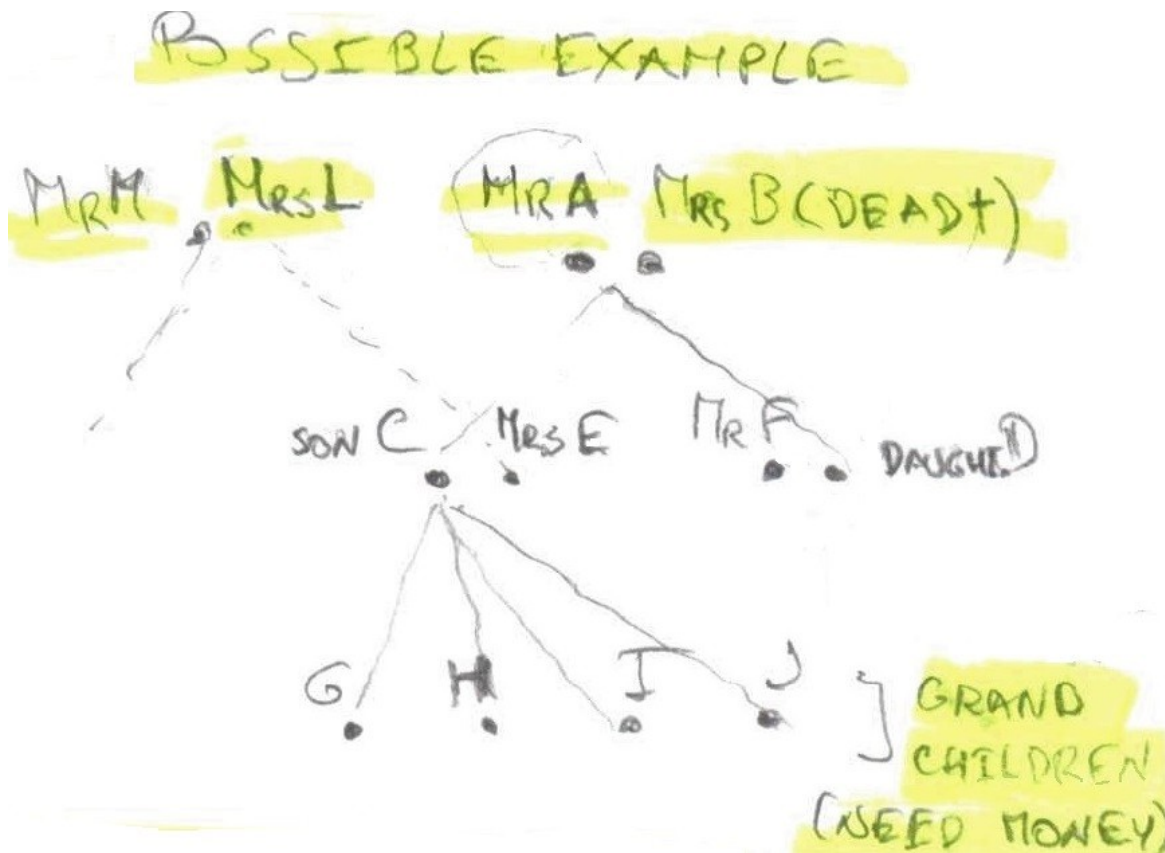 POSSIBLE EXAMPLE
MR M MRS L MR A MRS B (DEAD†)
SON C MRS E MR F DAUGHE. D
G H I J
GRAND
CHILDREN
(NEED MONEY)